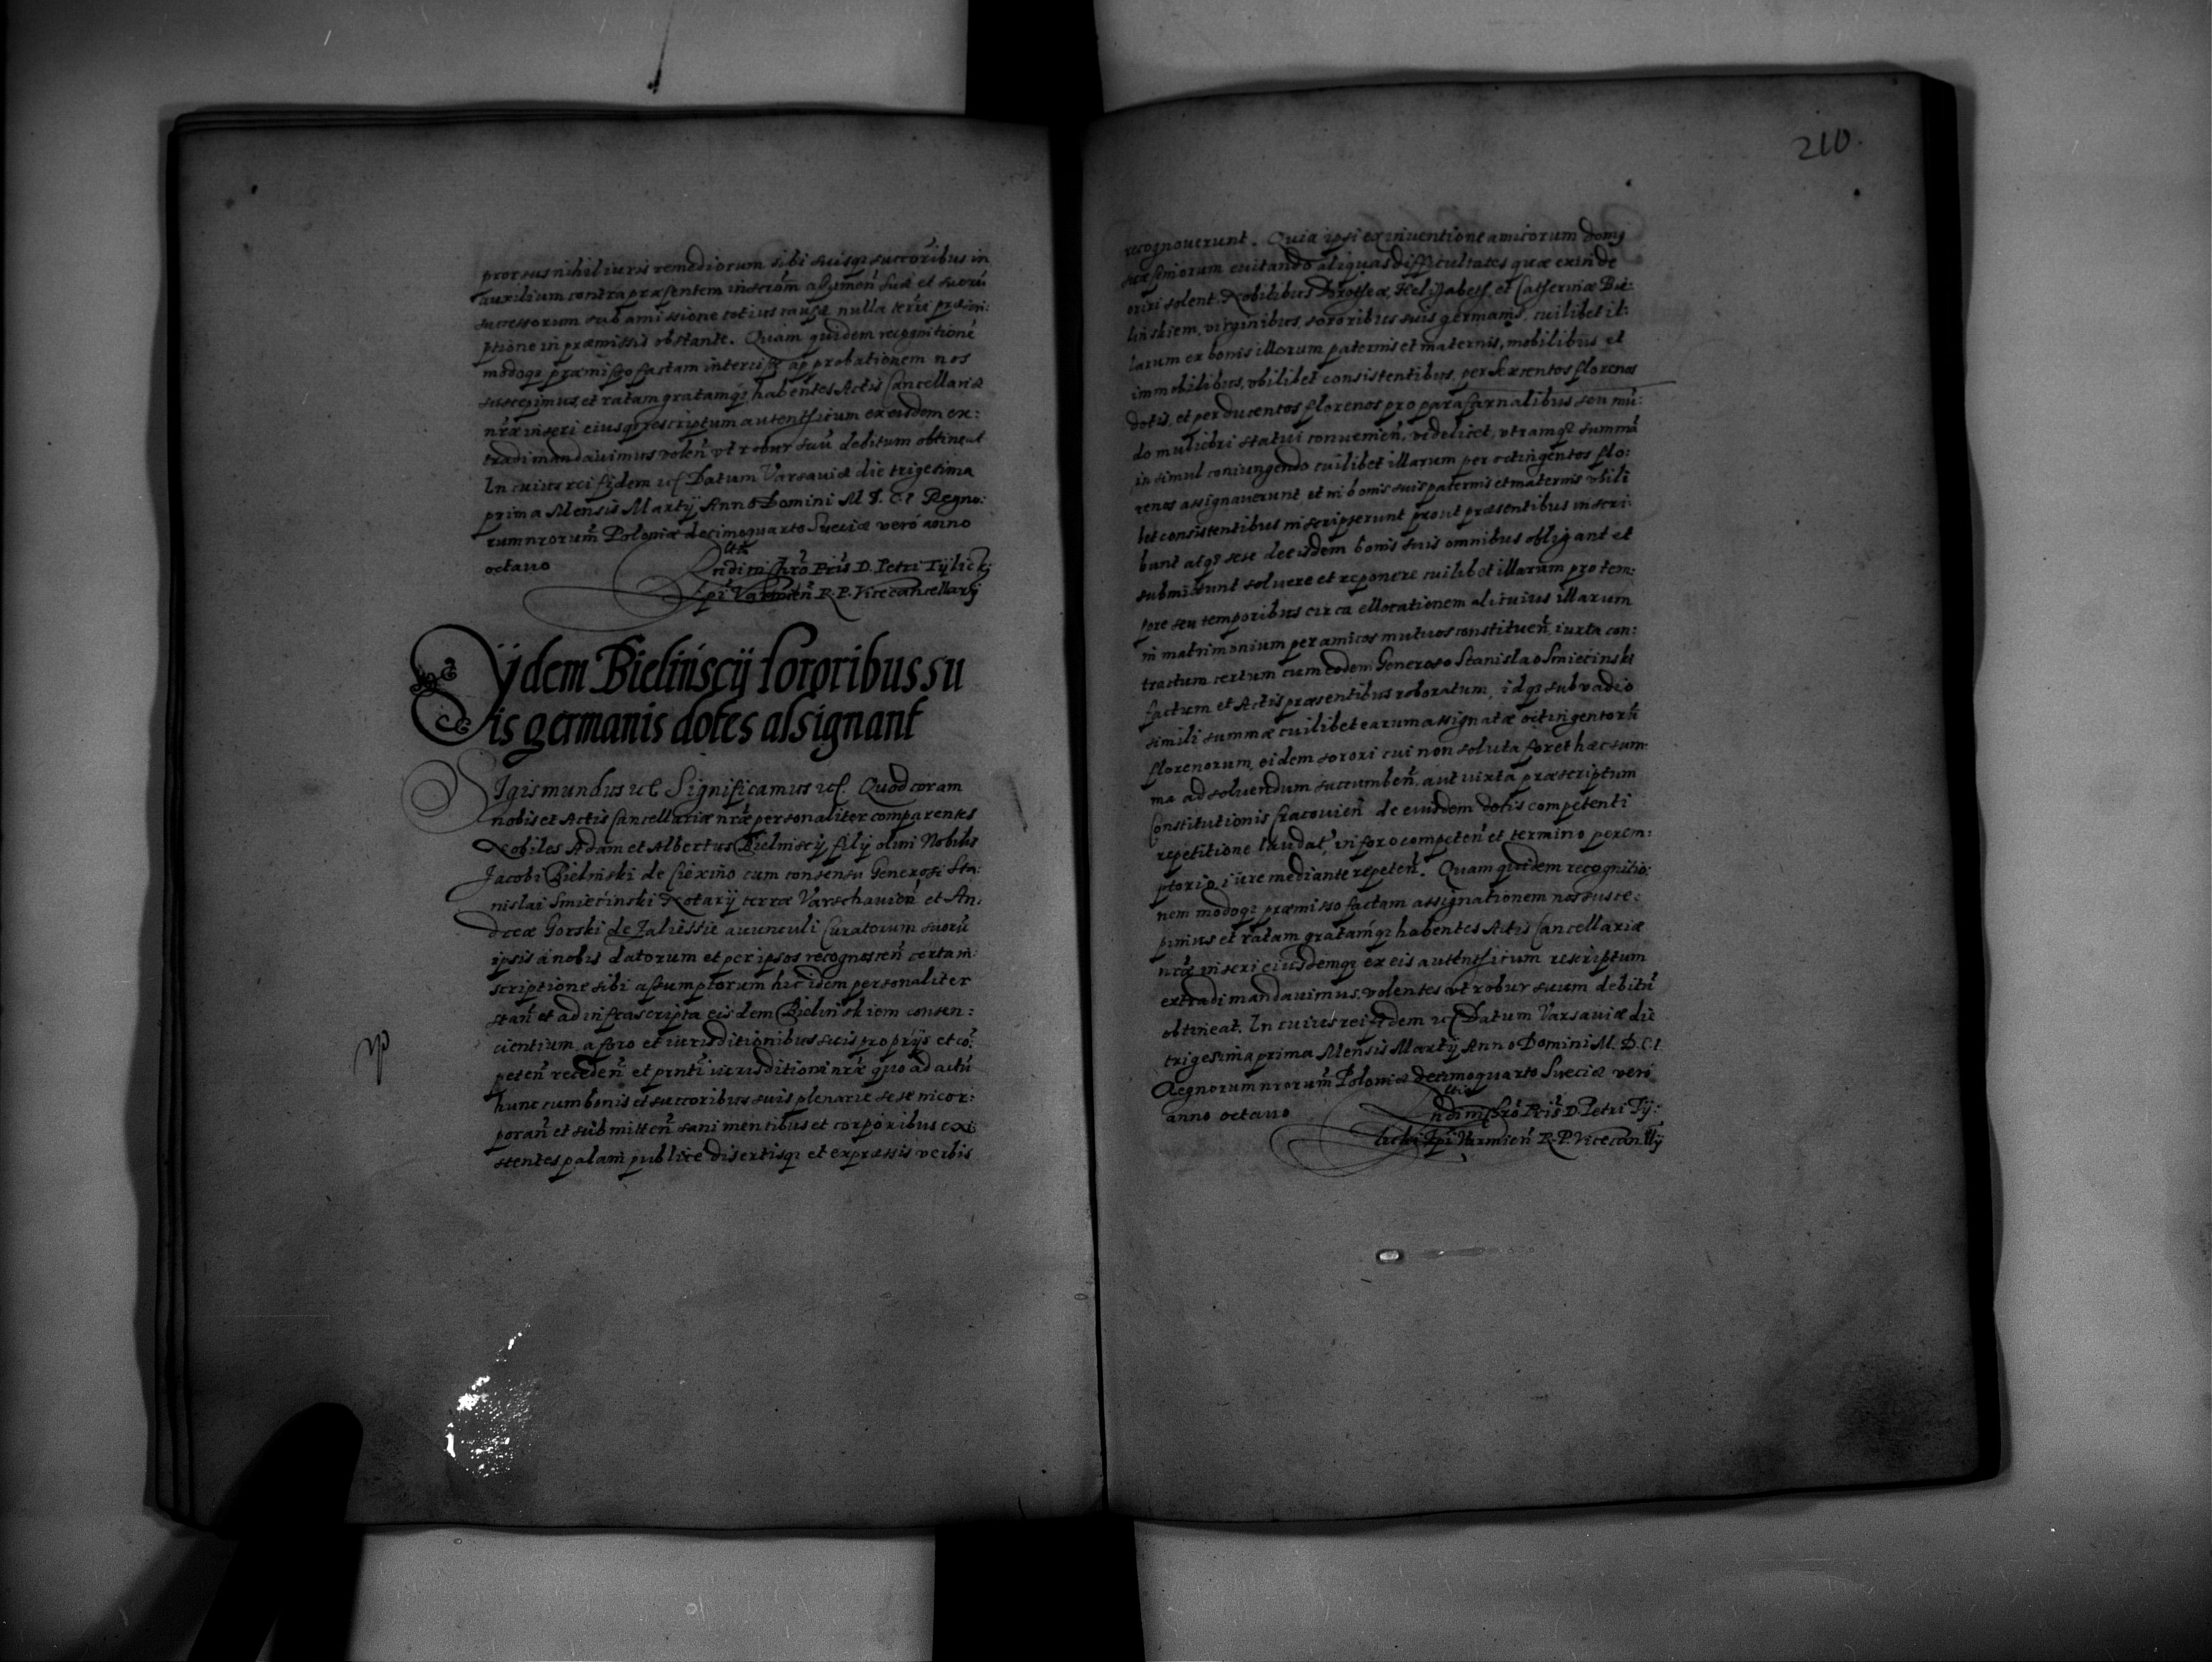 prorsus nihil iuris remediorum sibi suisq; succōribus in
auxilium contra præsentem inscrōm assumeñ suæ et suorū
successorum sub amissione totius causæ nulla terræ præscri:
ptione in præmissis obstante. Quam quidem recognitionē
modoq; præmisso factam intercisæ approbationem nos
suscepimus et ratam gratamq; habentes Actis Cancellariæ
nr̄æ inseri eiusq; rescriptum autenthicum ex eisdem ex:
tradi mandauimus voleñ vt robur suū debitum obtineat
In cuius rei fidem etc Datum Varsauiæ die trigesima
prima Mensis Martij Anno Domini M. D. C. I Regno:
rum nrorum̄ Poloniæ decimoquarto Sueciæ verò anno
octauo
Rndi in Chrō Pr̄is D. Petri Tÿlickj
Ep̄i Varmieñ R. P. Vicecancellarij
Ÿdem Bielińscÿ sororibus su
is germanis dotes assignant
Sigismundus etc Significamus etc. Quod coram
nobis et Actis Cancellariæ nr̄æ personaliter comparentes
Nobiles Adam et Albertus Bielinscij filij olim Nobilis
Jacobi Bielinski de cum consensu Generosi Sta:
nislai Smiecinski Notarij terræ Varschauieñ et An:
dreæ Gorski de Zaliessie auunculi Curatorum suorū
ipsis à nobis datorum et per ipsos recognosceñ certam
scriptione sibi assumptorum hic idem personaliter
stañ et ad infrascripta eisdem Bielinskiem consen:
cientium, a foro et iurisditionibus suis proprijs et cō:
peteñ recedeñ et prn̄ti iurisditioni nr̄æ quo ad actū
hunc cum bonis et succoribus suis plenarie sese incor:
porañ et submitteñ sani mentibus et corporibus exi
stentes palam publice disertisq; et expressis verbis
210.
recognouerunt. Quia ipsi ex inuentione amicorum domq
suæ seniorum euitando aliquas difficultates quæ exinde
oriri solent. Nobilibus Drotheæ, Helizabeth, et Catherinæ Bie:
linskiem, virginibus, sororibus suis germanis, cuilibet il:
larum ex bonis illorum paternis et maternis, mobilibus et
immobilibus, vbilibet consistentibus, per sexcentos florenos
dotis, et per ducentos florenos pro parafarnalibus seu mū:
do muliebri statui conuenieñ, videlicet, vtramq; summā
in simul coniungendo cuilibet illarum per octingentos flo:
renos assignauerunt, et in bonis suis paternis et maternis vbili
bet consistentibus inscripserunt prout præsentibus inscri:
bunt atq; sese de eisdem bonis suis omnibus obligant et
submittunt soluere et reponere cuilibet illarum pro tem:
pore seu temporibus circa ellocationem alicuius illarum
in matrimonium per amicos mutuos constitueñ, iuxta con:
tractum certum cum eodem Generoso Stanislao Smiecinski
factum et Actis præsentibus roboratum, idq; sub vadio
simili summæ cuilibet earum assignatæ octingentorū
florenorum, eidem sorori cui non soluta foret hæc sum:
ma ad soluendum succumbeñ, aut iuxta præscriptum
Constitutionis Cracouieñ de eiusdem dotis competenti
repetitione laudat', in foro competeñ et termino perem:
ptorio iure mediante repeteñ. Quam quidem recognitio:
nem modoq; præmisso factam assignationem nos susce:
pimus et ratam gratamq; habentes Actis Cancellariæ
nr̄æ inseri eiusdemq; ex eis autenthicum rescriptum
extradi mandauimus, volentes vt robur suum debitū
obtineat. In cuius rei fidem etc Datum Varsauiæ die
trigesima prima Mensis Martij Anno Domini M. D. C. I.
Regnorum nrorum̄ Poloniæ decimoquarto Sueciæ verò
anno octauo
Rndi in Chrō Pr̄is D. Petri Tÿ:
licki Ep̄i Varmieñ R. P. Vicecanllij